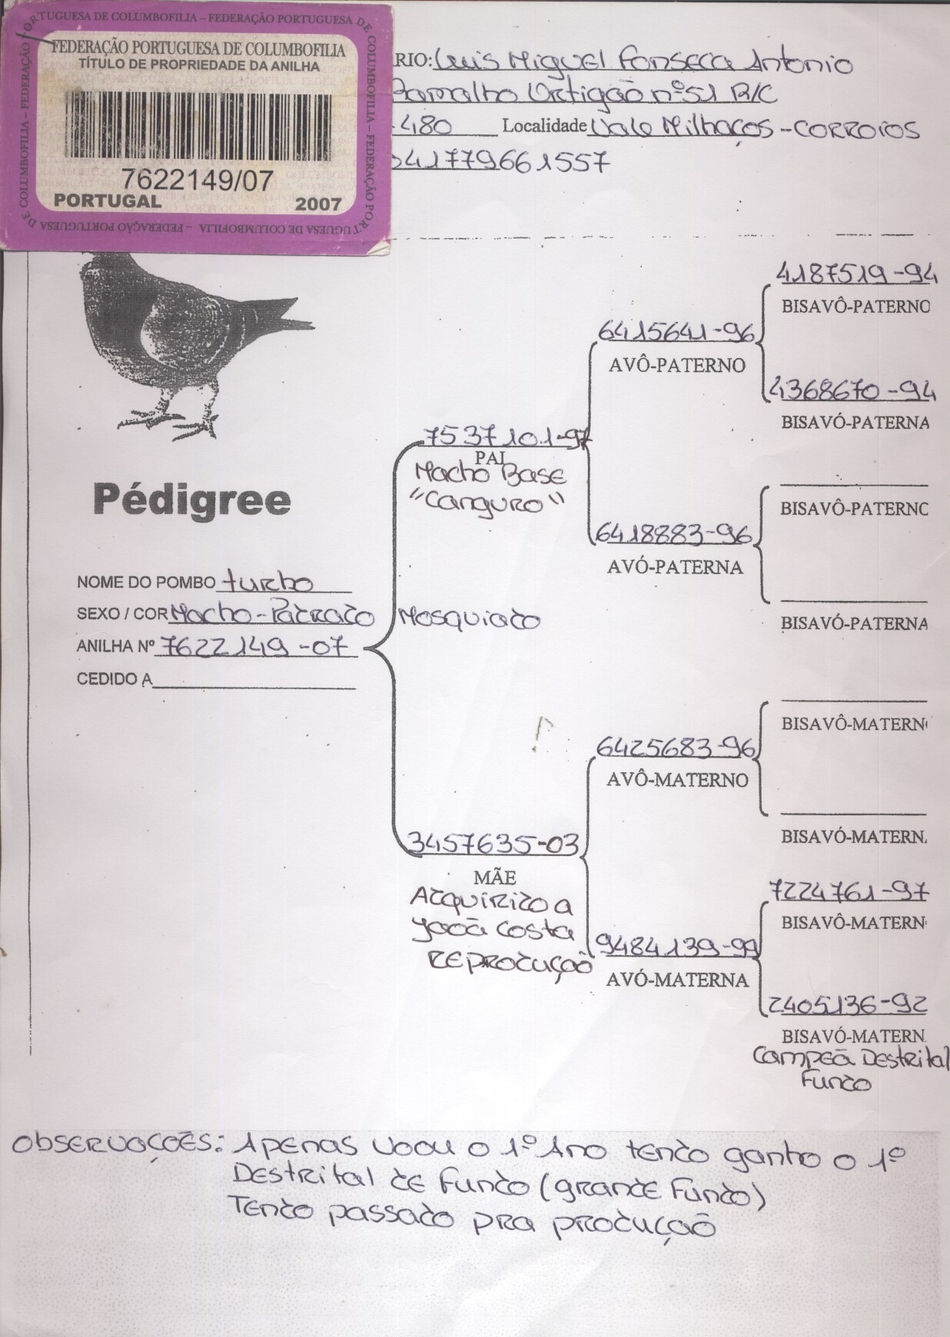 FEDERAÇÃO PORTUGUESA DE COLUMBOFILIA – FEDERAÇÃO PORTUGUESA DE COLUMBOFILIA
FEDERAÇÃO PORTUGUESA DE COLUMBOFILIA
TÍTULO DE PROPRIEDADE DA ANILHA
7622149/07
PORTUGAL 2007
RIO: Luis Miguel Fonseca Antonio
Ramalho Ortigão nº51 R/C
480 Localidade Vale Milhaços - CORROIOS
41779661557
4187519-94
BISAVÔ-PATERNO
6415641-96
AVÔ-PATERNO
4368670-94
BISAVÓ-PATERNA
7537101-97
PAI
Macho Base
"Canguro"
BISAVÔ-PATERNO
6418883-96
AVÓ-PATERNA
BISAVÓ-PATERNA
Pédigree
NOME DO POMBO turbo
SEXO / COR Macho-Pedrado Mosquiado
ANILHA Nº 7622149-07
CEDIDO A
BISAVÔ-MATERN
6425683-96
AVÔ-MATERNO
BISAVÓ-MATERN
3457635-03
MÃE
Adquirido a
João Costa
REPRODUÇÃO
7224761-97
BISAVÔ-MATERN
9484139-99
AVÓ-MATERNA
2405136-92
BISAVÓ-MATERN
Campeã Destrital
Fundo
OBSERVAÇÕES: Apenas voou o 1º Ano tendo ganho o 1º
Destrital de Fundo (grande Fundo)
Tendo passado pra produção